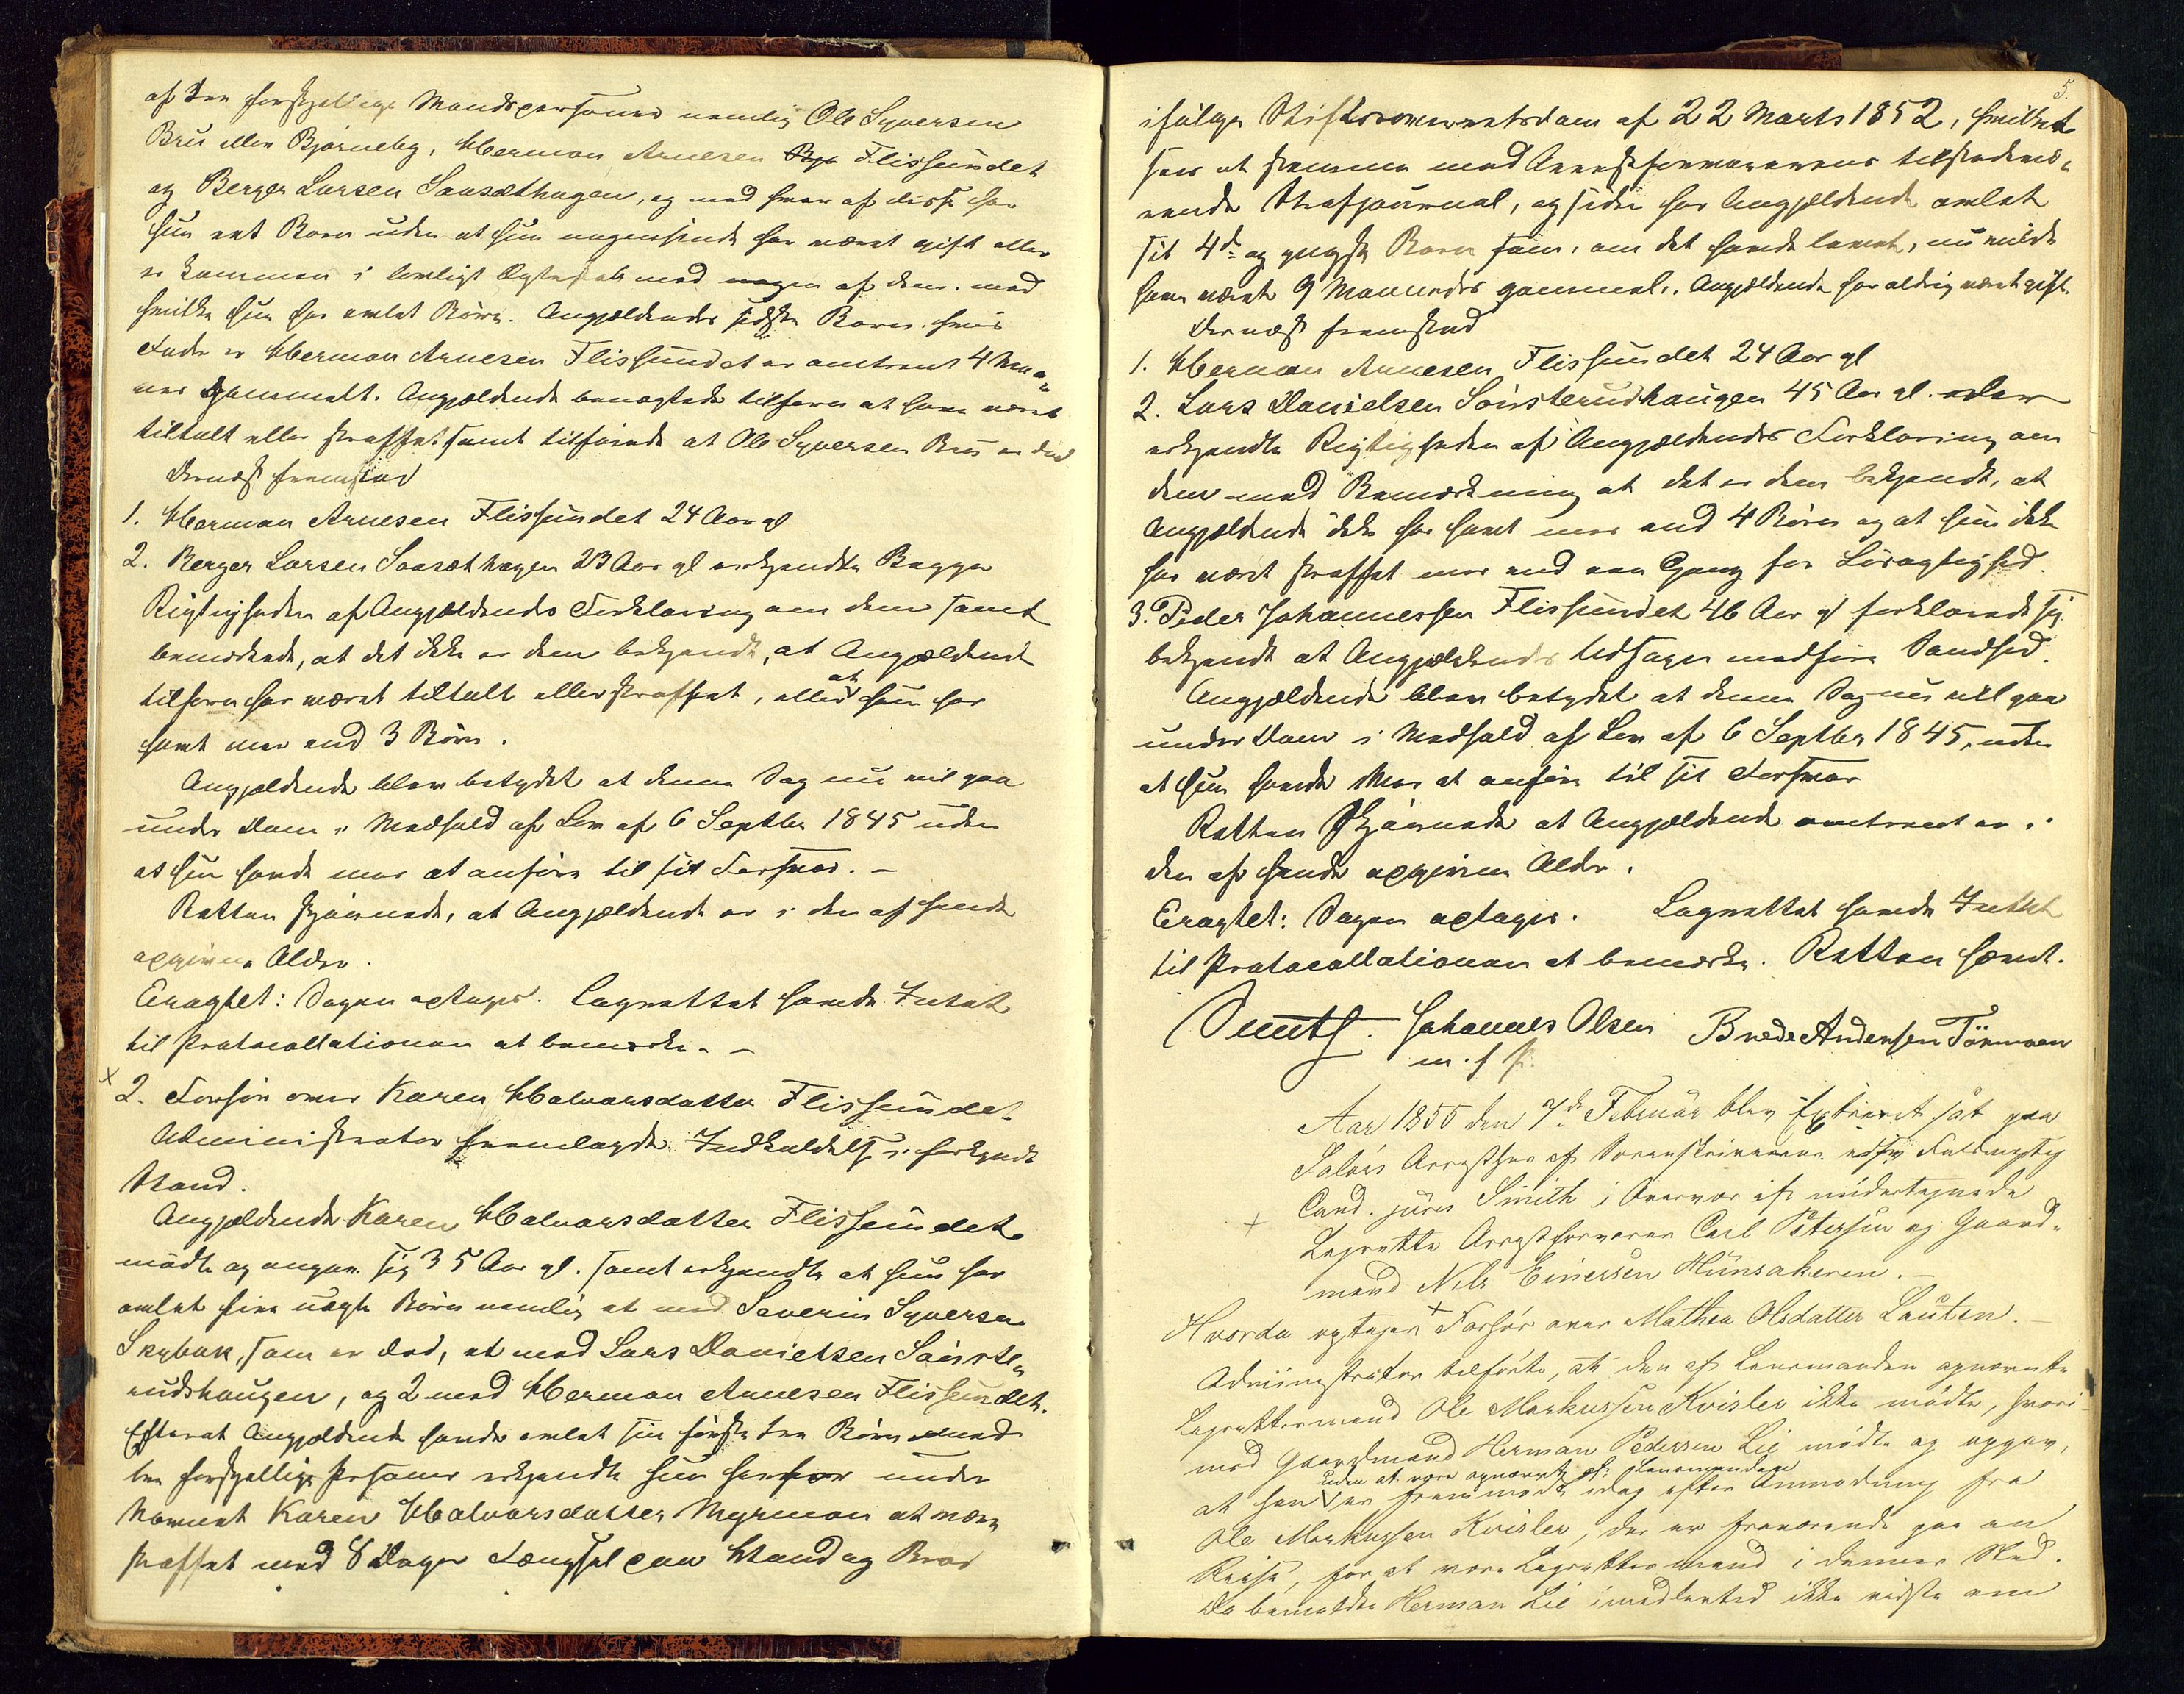 af tre forskjellige Mandspersoner nemlig Ole Syversen
Bru eller Bjørneby, Herman Arnesen Flissundet
og Berger Larsen Saasæthagen, og med hver af disse har
hun et Barn uden at hun nogensinde har været gift eller
er kommen i lovligt Ægteskab med nogen af dem, med
hvilke hun har avlet Børn. Angjældendes sidste Barn, hvis
Fader er Herman Arnesen Flissundet er omtrent 4 Maa-
ner gammelt. Angjældende benægtede tilforn at have været
tiltalt eller straffet samt tilføiede at Ole Syversen Bru er død
Dernæst fremstod
1. Herman Arnesen Flissundet 24 Aar gl
2. Berger Larsen Saasæthagen 23 Aar gl erkjendte Begge
Rigtigheden af Angjældendes Forklaring om dem samt
bemærkede, at det ikke er dem bekjendt, at Angjældende
tilforn har været tiltalt eller straffet, eller at hun har
havt mer end 3 Børn.
Angjældende blev betydet at denne Sag nu vil gaa
under Dom i Medhold af Lov af 6 Septbr 1845 uden
at hun havde mer at anføre til sit Forsvar. –
Retten skjønnede, at Angjældende er i den af hende
opgivne Alder.
Eragtet: Sagen optages. Lagrettet havde Intet
til Protocollationen at bemærke. –
x 2. Forhør over Karen Halvorsdatter Flissundet
Administrator fremlagde Indkaldelse i forkyndt
Stand.
Angjældende Karen Halvorsdatter Flissundet
mødte og angav sig 35 Aar gl. samt erkjendte at hun har
avlet fire uægte Børn nemlig et med Severin Syversen
Skybak, som er død, et med Lars Danielsen Sønste-
rudhaugen, og 2 med Herman Arnesen Flissundet.
Efterat Angjældende havde avlet sin første tre Børn med
tre forskjellige Personer erkjendte hun herfor under
Navnet Karen Halvorsdatter Myrmoen at være
straffet med 8 Dages Fængsel paa Vand og Brød
5.
ifølge Stiftsoverretsdom af 22 Marts 1852, hvilket
sees at stemme med Arrestforvarerens tilstedevæ-
rende Strafjournal, og siden har Angjældende avlet
sit 4de og yngste Barn som, om det havde levet, nu vilde
have været 9 Maaneder gammel. Angjældende har aldrig været gift.
Dernæst fremstod
1. Herman Arnesen Flissundet 24 Aar gl
2. Lars Danielsen Sønsterudhaugen 45 Aar gl. 
erkjendte Rigtigheden af Angjældendes Forklaring om
dem med Bemærkning at det er dem bekjendt, at
Angjældende ikke har havt mer end 4 Børn og at hun ikke
har været straffet mer end een Gang for Løsagtighed.
3. Peder Johannessen Flissundet 46 Aar gl forklarede sig
bekjendt at Angjældendes Udsagn medføre Sandhed.
Angjældende blev betydet at denne Sag nu vil gaa
under Dom i Medhold af Lov af 6 Septbr 1845, uden
at hun havde Mer at anføre til sit Forsvar
Retten skjønnede at Angjældende omtrent er i
den af hende opgivne Alder.
Eragtet: Sagen optages. Lagrettet havde Intet
til Protocollationen at bemærke. Retten hævet.
Smith. Johannes Olsen Brede Andersen Tørmoen
m. f P.
Aar 1855 den 7de Februar blev Extraret sat paa
Soløers Arresthus af Sorenskriverens Fuldmægtig
Cand. juris Smith i Overvær af undertegnede
x Lagrette Arrestforvarer Carl Petersen og Gaard-
mand Nils Einersen Hunsakeren. –
Hvorda optoges x Forhør over Mathea Olsdatter Lauten. –
Administrator tilførte, at den af Lensmanden opnævnte
Lagrettesmand Ole Markussen Kvisler ikke mødte, hvori-
mod Gaardmand Herman Pedersen Lie mødte og opgav,
uden at være opnævnt af Lensmanden
at han er fremmødt idag efter Anmodning fra
Ole Markussen Kvisler, der er fraværende paa en
Reise, for at være Lagrettesmand i dennes Sted.
Da bemeldte Herman Lie imidlertid ikke vidste om